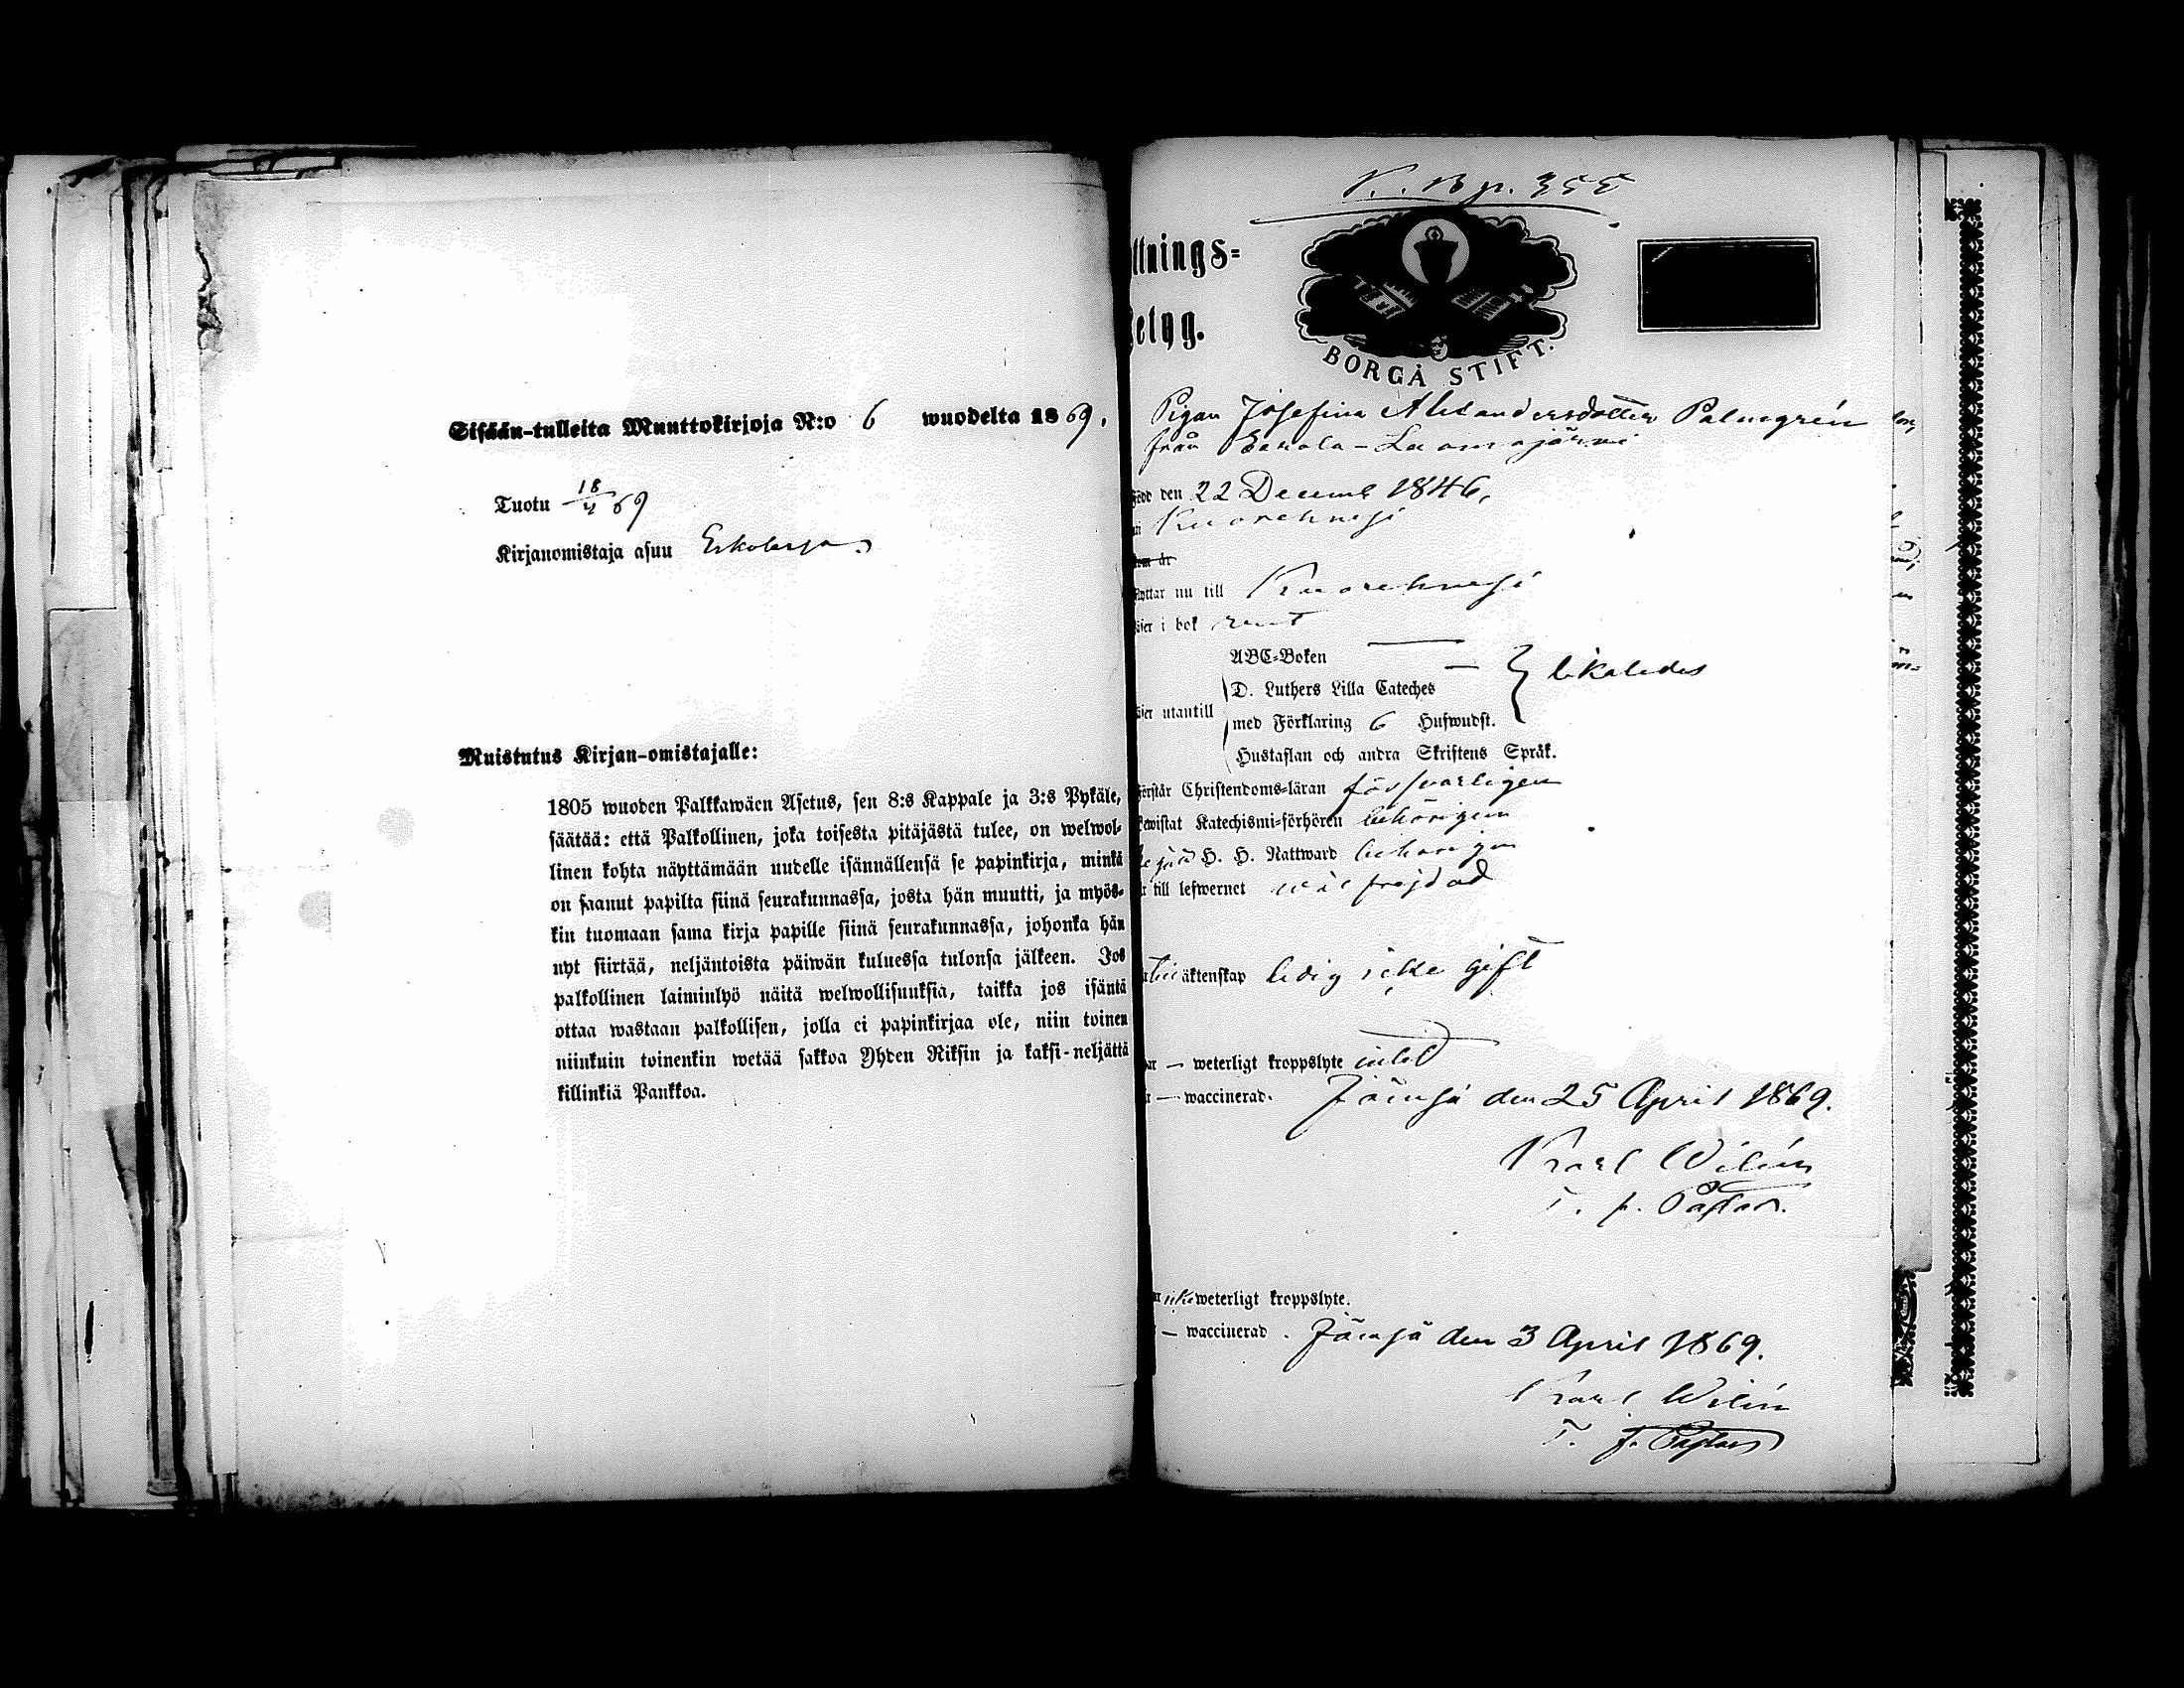 Sisään-tulleita Muuttokirjoja N:o 6 wuodelta 1869.
Tuotu 18/4 69
Kirjanomistaja asuu
Muistutus Kirjan-omistajalle:
1805 wuoden Palkkawäen Asetus, sen 8:s Kappale ja 3:s Pykäle,
säätää: että Palkollinen, joka toisesta pitäjästä tulee, on welwol-
linen kohta näyttämään uudelle isännällensä se papinkirja, minkä
on saanut papilta siinä seurakunnassa, josta hän muutti, ja myös-
kin tuomaan sama kirja papille siinä seurakunnassa, johonka hän
nyt siirtää, neljäntoista päiwän kuluessa tulonsa jälkeen. Jos
palkollinen laiminlyö näitä welwollisuuksia, taikka jos isäntä
ottaa wastaan palkollisen, jolla ei papinkirjaa ole, niin toinen
niinkuin toinenkin wetää sakkoa Yhden Riksin ja kaksi-neljättä
killinkiä Pankkoa.
K. B p. 355
ttnings=
etyg.
BORGÅ STIFT.
Pigan Josefina Alexandersdotter Palmgrén
från
den 22 Decemb 1846,
Kuorehwesi
år
nu till Kuorehwesi
i bok rent
ABC=Boken
D. Luthers Lilla Cateches
utantill
med Förklaring 6 Hufwudst.
likaledes
Hustaflan och andra Skriftens Språk.
Förstår Christendoms=läran försvarligen
Katechismi=förhören behörigen
H. H. Nattward behörigen
till lefwernet wälfrejdad
äktenskap ledig icke gift
— weterligt kroppslyte
— waccinerad. Jämsä den 25 April 1869.
Karl Wilén
T. f. Pastor.
icke weterligt kroppslyte.
— waccinerad. Jämsä den 3 April 1869.
Karl Wilén
T. f. Pastor